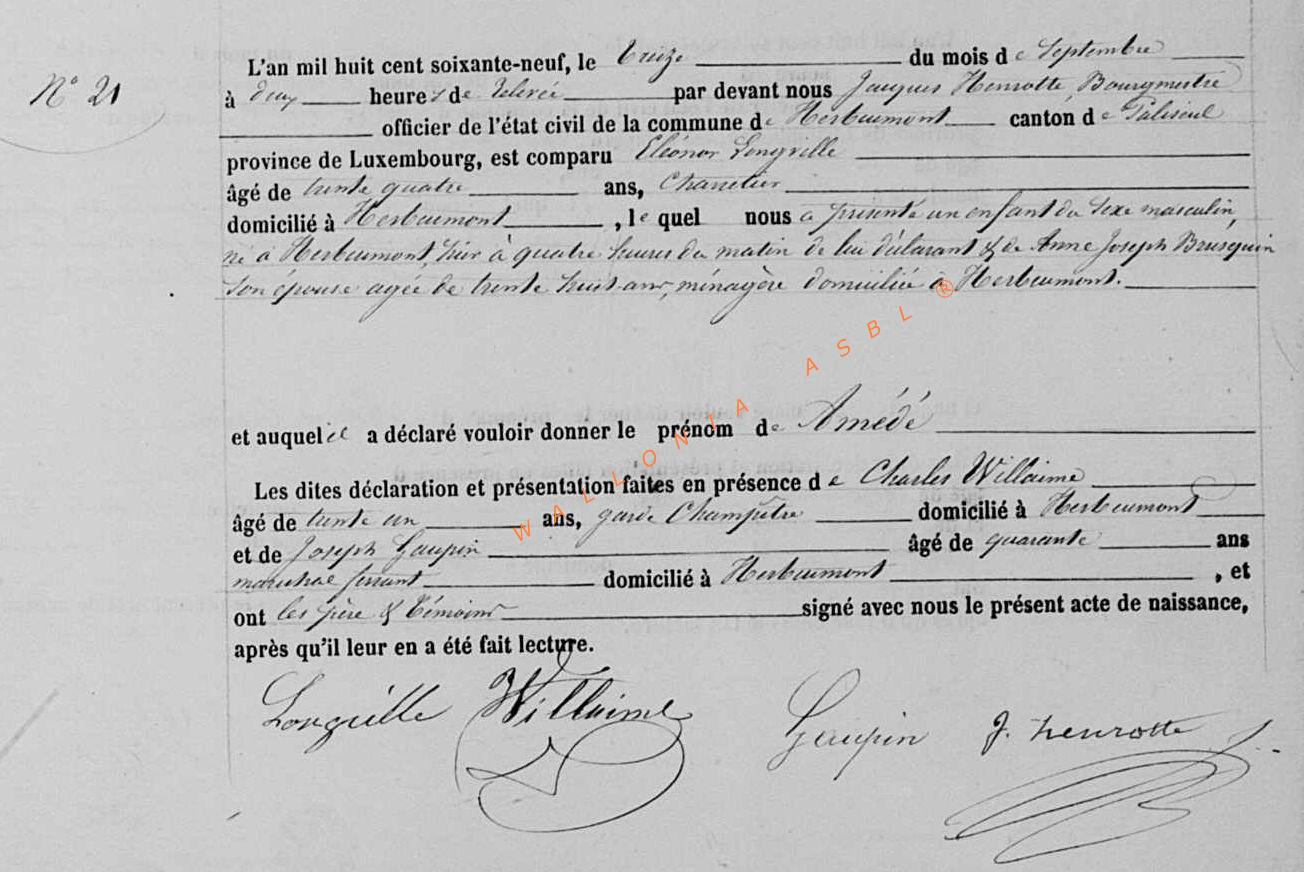 N° 21
L'an mil huit cent soixante-neuf, le treize du mois de Septembre
à deux heures de relevée par devant nous Jacques Henrotte, Bourgmestre
officier de l'état civil de la commune de Herbeumont canton de Paliseul
province de Luxembourg, est comparu Eléonor Longville
âgé de trente quatre ans, Charretier
domicilié à Herbeumont, lequel nous a présenté un enfant du sexe masculin,
né à Herbeumont, hier à quatre heures du matin de lui déclarant & de Anne Joseph Brusquin
son épouse agée de trente huit ans, ménagère domiciliée à Herbeumont.
et auquel il a déclaré vouloir donner le prénom de Amédé
Les dites déclaration et présentation faites en présence de Charles Willaime
âgé de trente un ans, garde Champêtre domicilié à Herbeumont
et de Joseph Gaupin âgé de quarante ans
maréchal ferrant domicilié à Herbeumont, et
ont les père & témoins signé avec nous le présent acte de naissance,
après qu'il leur en a été fait lecture.
Longville Willaime Gaupin J. Henrotte
WALLONIA ASBL ®